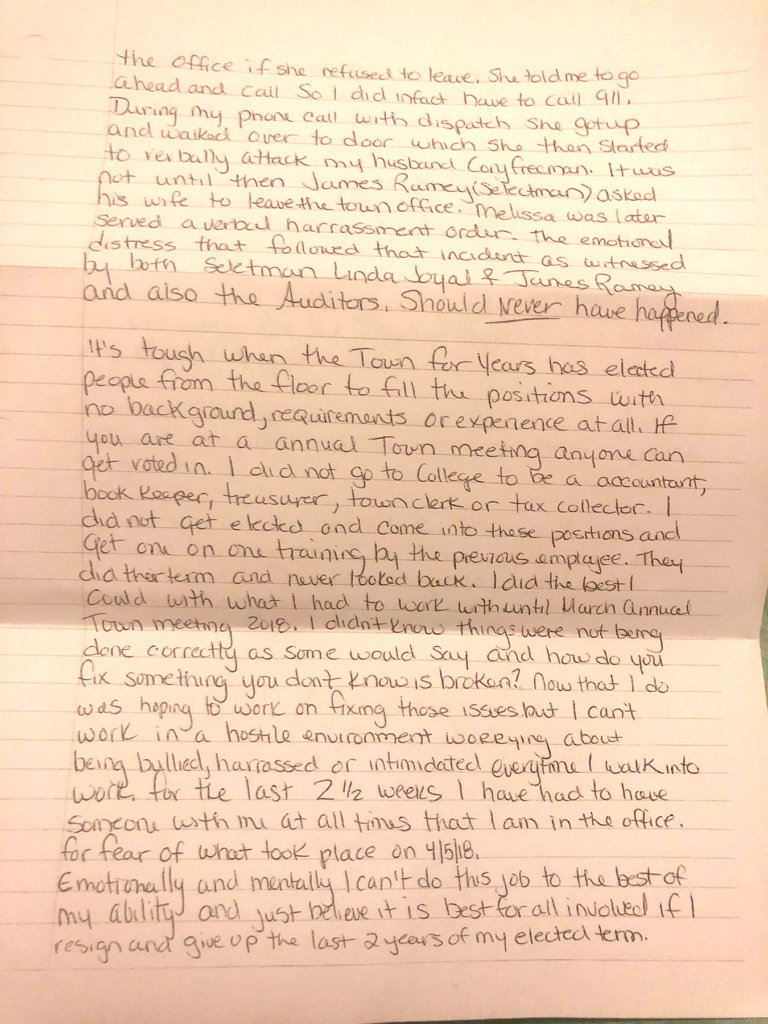 the office if she refused to leave. She told me to go
ahead and call So I did infact have to call 911.
During my phone call with dispatch she got up
and walked over to door which she then started
to verbally attack my husband Cory freeman. It was
not until then James Ramey (Selectman) asked
his wife to leave the town office. Melissa was later
served a verbal harrassment order. The emotional
distress that followed that incident as witnessed
by both Seletman Linda Joyal & James Ramey
and also the Auditors, Should Never have happened.
It's tough when the Town for Years has elected
people from the floor to fill the positions with
no background, requirements or experience at all. If
you are at a annual Town meeting anyone can
get voted in. I did not go to College to be a accountant,
book keeper, treasurer, town clerk or tax collector. I
did not get elected and come into these positions and
get one on one training by the previous employee. They
did ther term and never looked back. I did the best I
could with what I had to work with until March annual
Town meeting 2018. I didn't know things were not being
done correctly as some would say and how do you
fix something you don't know is broken? Now that I do
was hoping to work on fixing those issues but I can't
work in a hostile environment worrying about
being bullied, harrassed or intimidated everytime I walk into
work. for the last 2 1/2 weeks I have had to have
someone with me at all times that I am in the office.
for fear of what took place on 4/5/18.
Emotionally and mentally I can't do this job to the best of
my ability and just believe it is best for all involved if I
resign and give up the last 2 years of my elected term.